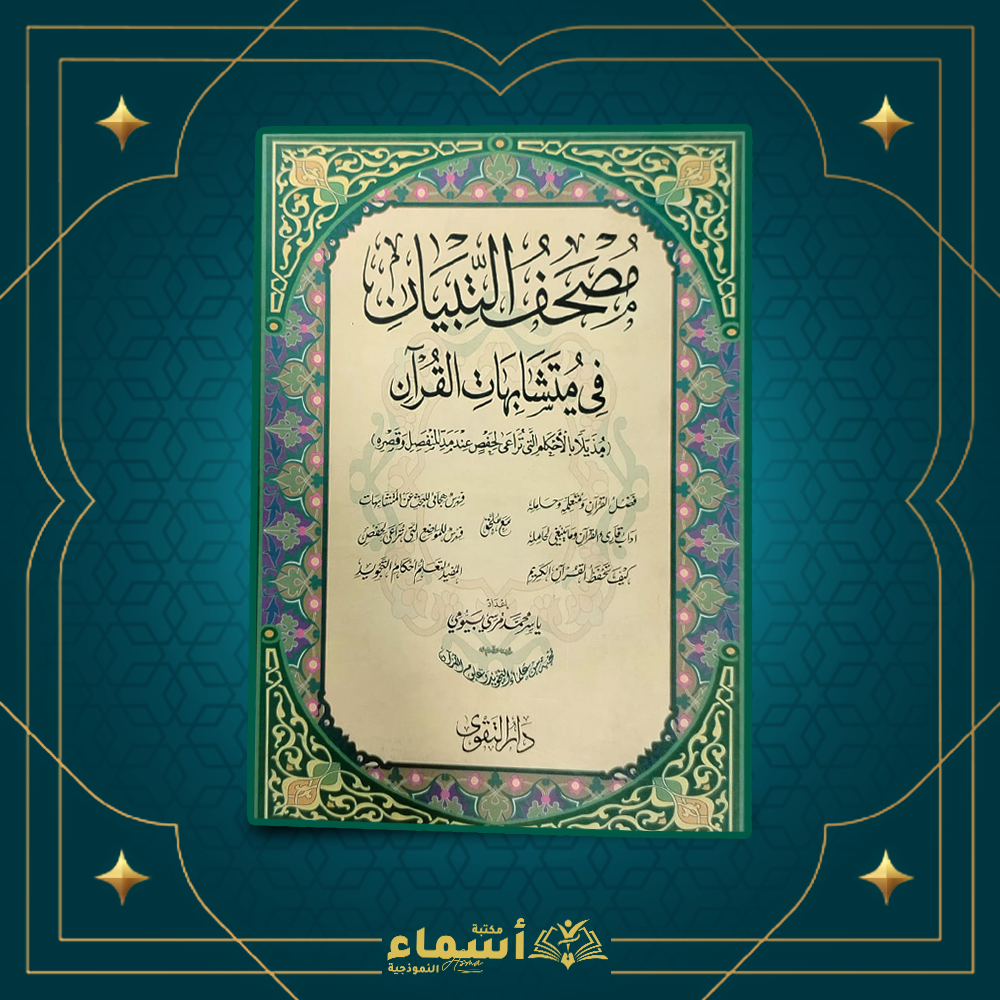 مُصْحَفُ التِّبْيَانِ
فِي مُتَشَابِهَاتِ القُرْآنِ
(مُذَيَّلًا بِالأَحْكَامِ الَّتِي تُرَاعَى لِحَفْصٍ عِنْدَ مَدِّ المُنْفَصِلِ وَقَصْرِهِ)
فَضْلُ القُرْآنِ وَمُتَعَلِّمِهِ وَحَامِلِهِ
آدَابُ قَارِئِ القُرْآنِ وَمَا يَنْبَغِي لِحَامِلِهِ
كَيْفَ تَحْفَظُ القُرْآنَ الكَرِيمَ
مَعَ مُلْحَق
فهرس هجائي للبحث عن المتشابهات
فهرس للمواضع التي تراعى لحفص
المفيد لتعلم أحكام التجويد
إعداد
ياسر محمد مرسي بيومي
نخبة من علماء التجويد وعلوم القرآن
دار التقوى
مكتبة
أسماء
النموذجية
Asma